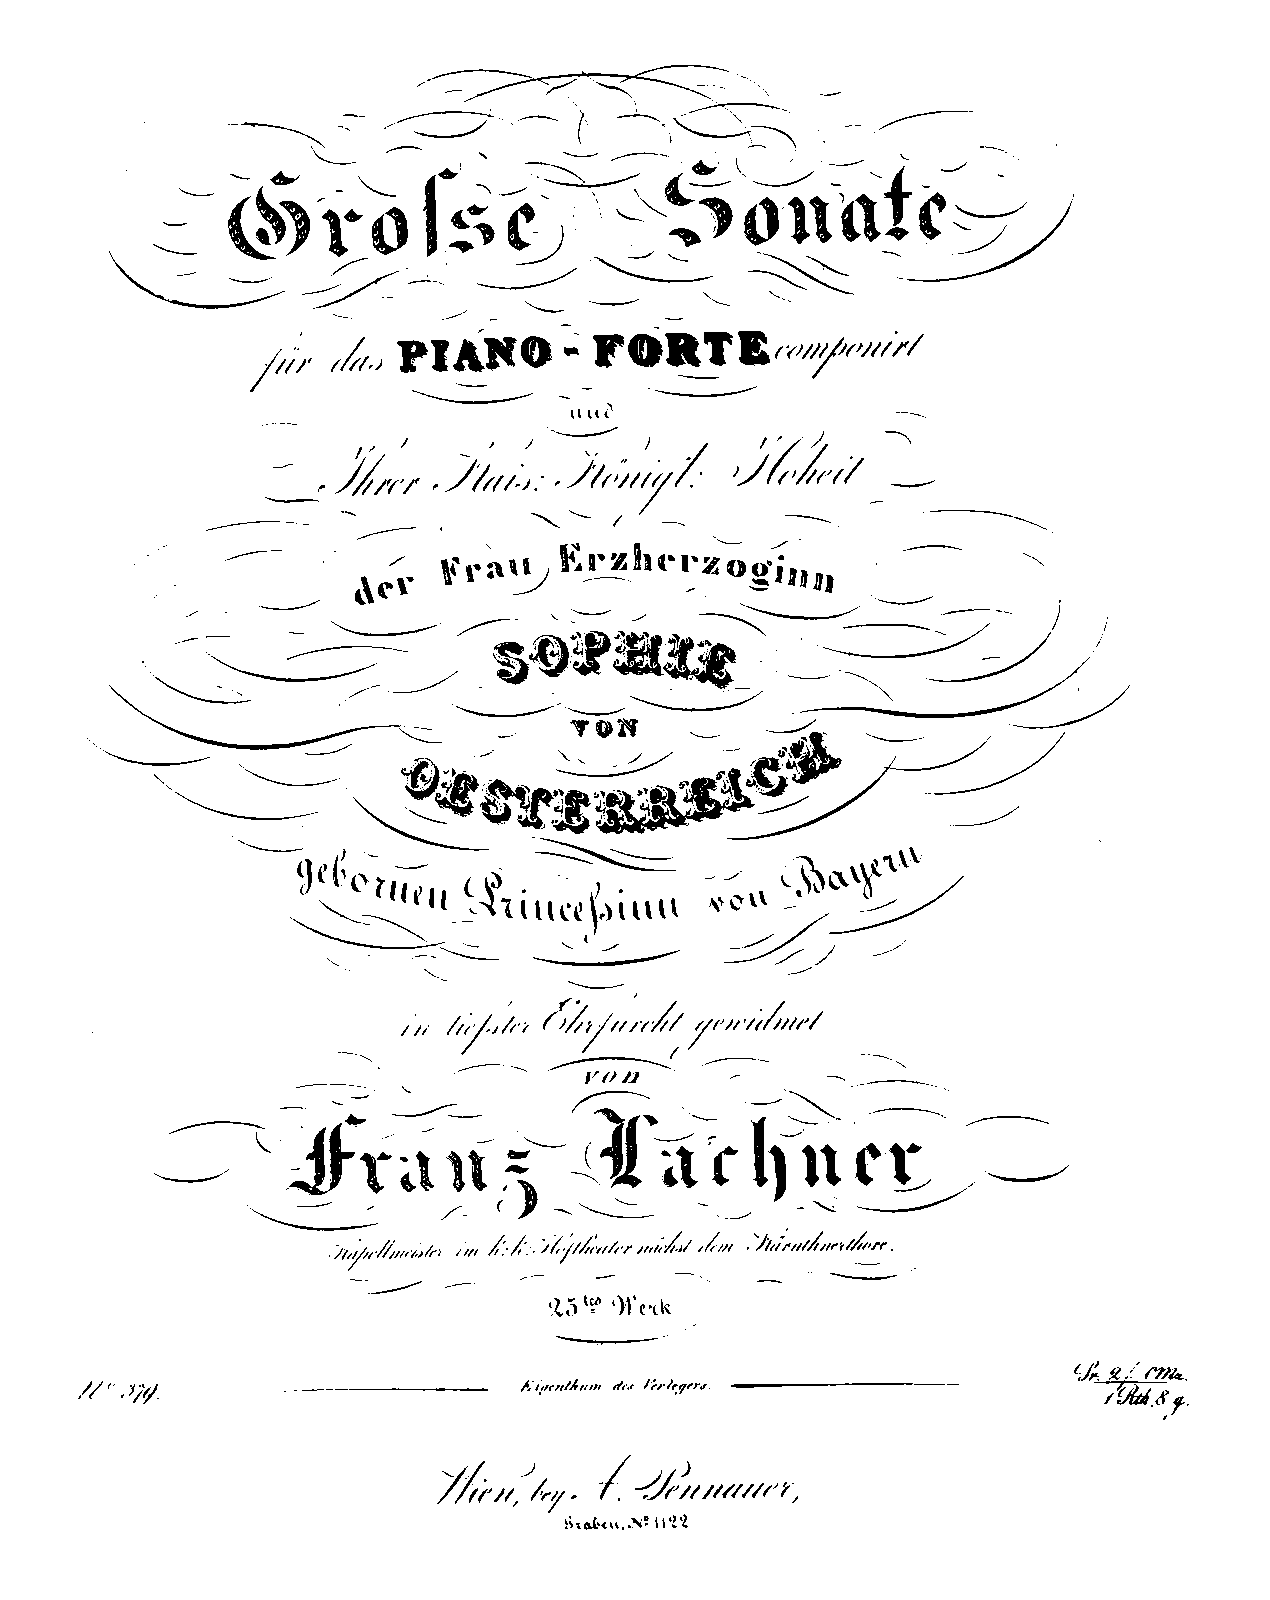 Groſse Sonate
für das PIANO-FORTE componirt
und
Ihrer Kais: Königl: Hoheit
der Frau Erzherzoginn
SOPHIE
VON
OESTERREICH
gebornen Princeßinn von Bayern
in tiefster Ehrfurcht gewidmet
von
Franz Lachner
Kapellmeister im k:k: Hoftheater nächst dem Kärnthnerthore.
25tes Werk
No 379.
Eigenthum des Verlegers.
Pr. 2 f. CMz.
1 Rth. 8 g.
Wien, bey A. Pennauer,
Graben, No 1122